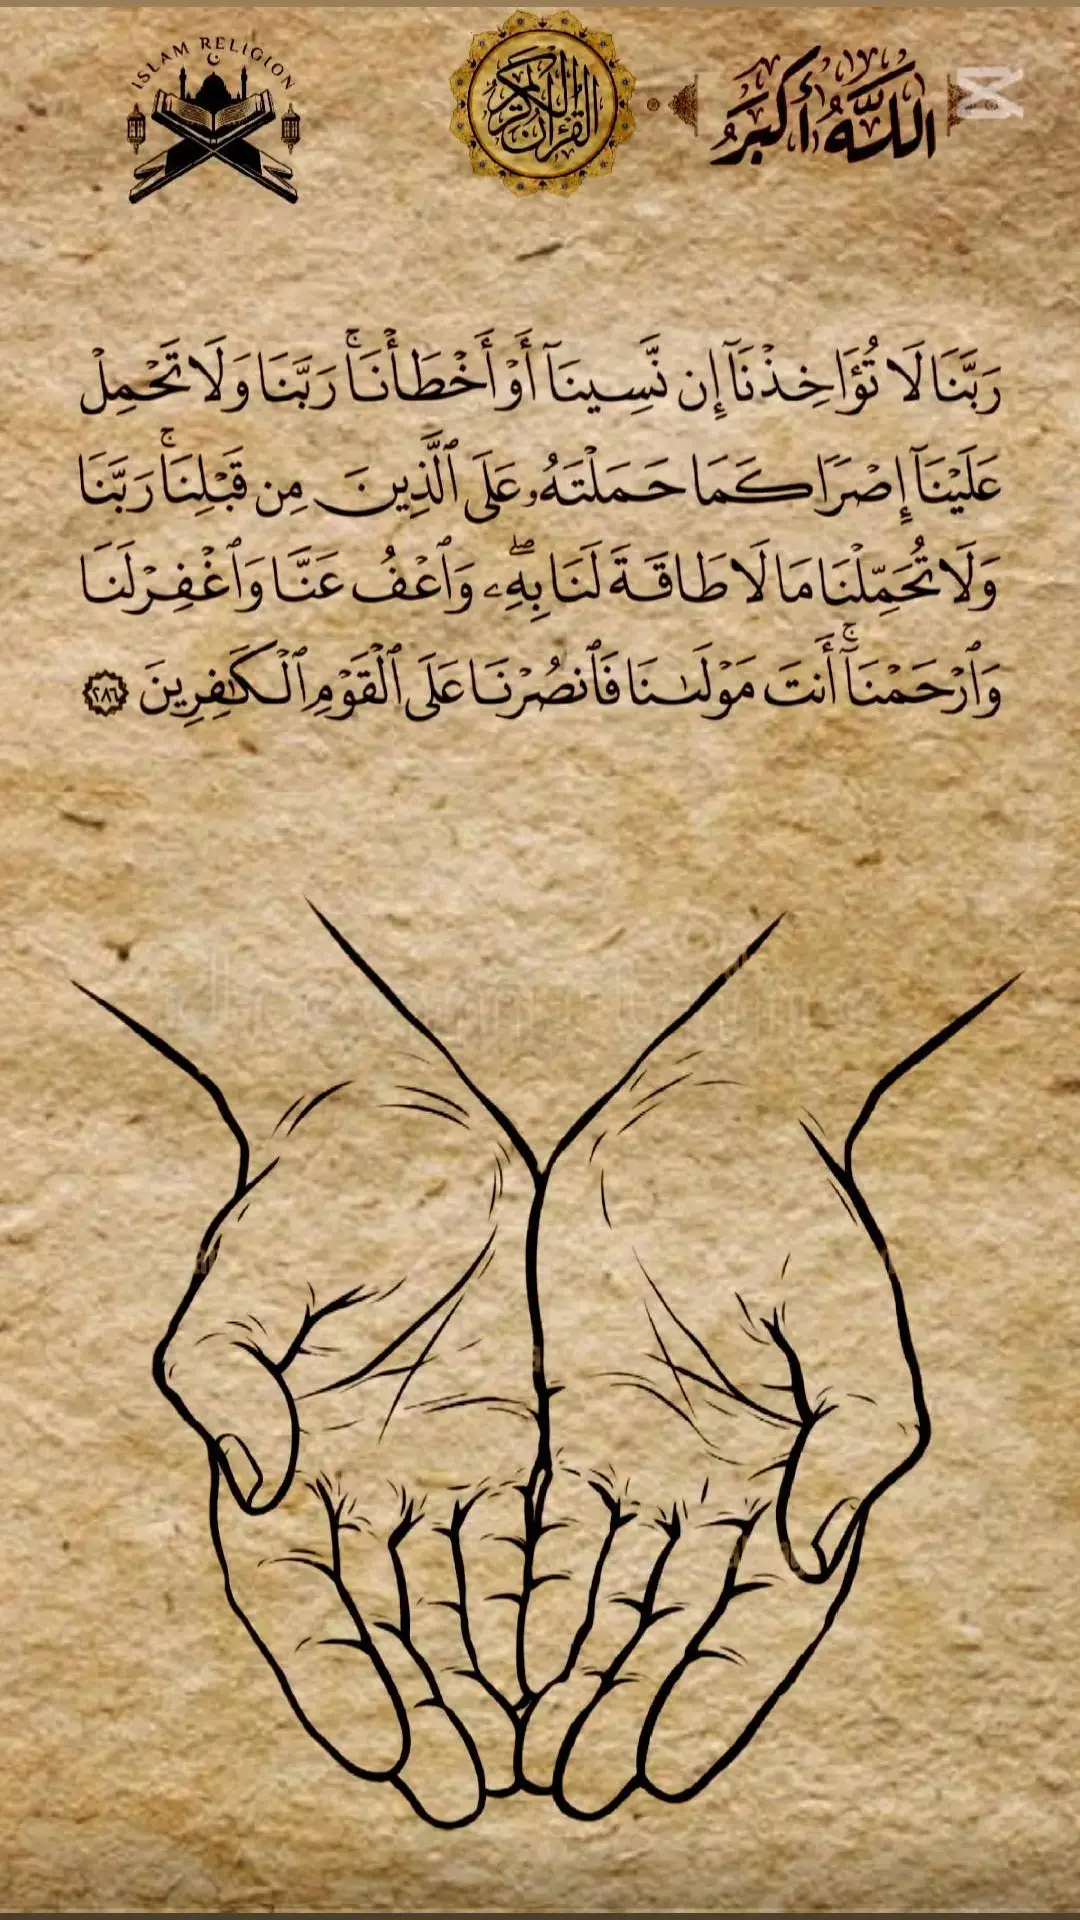 ISLAM RELIGION
القرآن الكريم
اللَّهُ أَكْبَرُ
رَبَّنَا لَا تُؤَاخِذْنَآ إِن نَّسِينَآ أَوْ أَخْطَأْنَا ۚ رَبَّنَا وَلَا تَحْمِلْ
عَلَيْنَآ إِصْرًا كَمَا حَمَلْتَهُۥ عَلَى ٱلَّذِينَ مِن قَبْلِنَا ۚ رَبَّنَا
وَلَا تُحَمِّلْنَا مَا لَا طَاقَةَ لَنَا بِهِۦ ۖ وَٱعْفُ عَنَّا وَٱغْفِرْ لَنَا
وَٱرْحَمْنَآ ۚ أَنتَ مَوْلَىٰنَا فَٱنصُرْنَا عَلَى ٱلْقَوْمِ ٱلْكَـٰفِرِينَ ٢٨٦